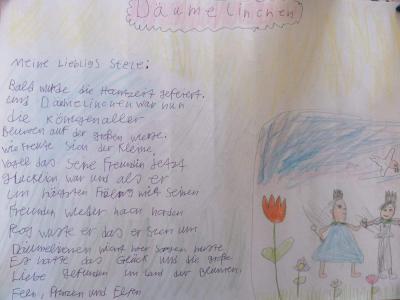 Däumelinchen
Meine Lieblings Stele:
Bald wurde die Hochzeit gefeiert.
und Daumelinchen war nun
die Königen aller
Blumen auf der großen wiese.
wie freute Sich der Kleine
Vogel das Seine Freundin Jetzt
glücklich war und als er
im nägsten Früling mit seinen
Freunden wieder nach norden
flog wuste er das er Sich um
Däumelienen nicht mer sorgen muste
Er hatte das Glück und die große
Liebe gefunden im Land der Blumen,
Feen, Prinzen und Elfen